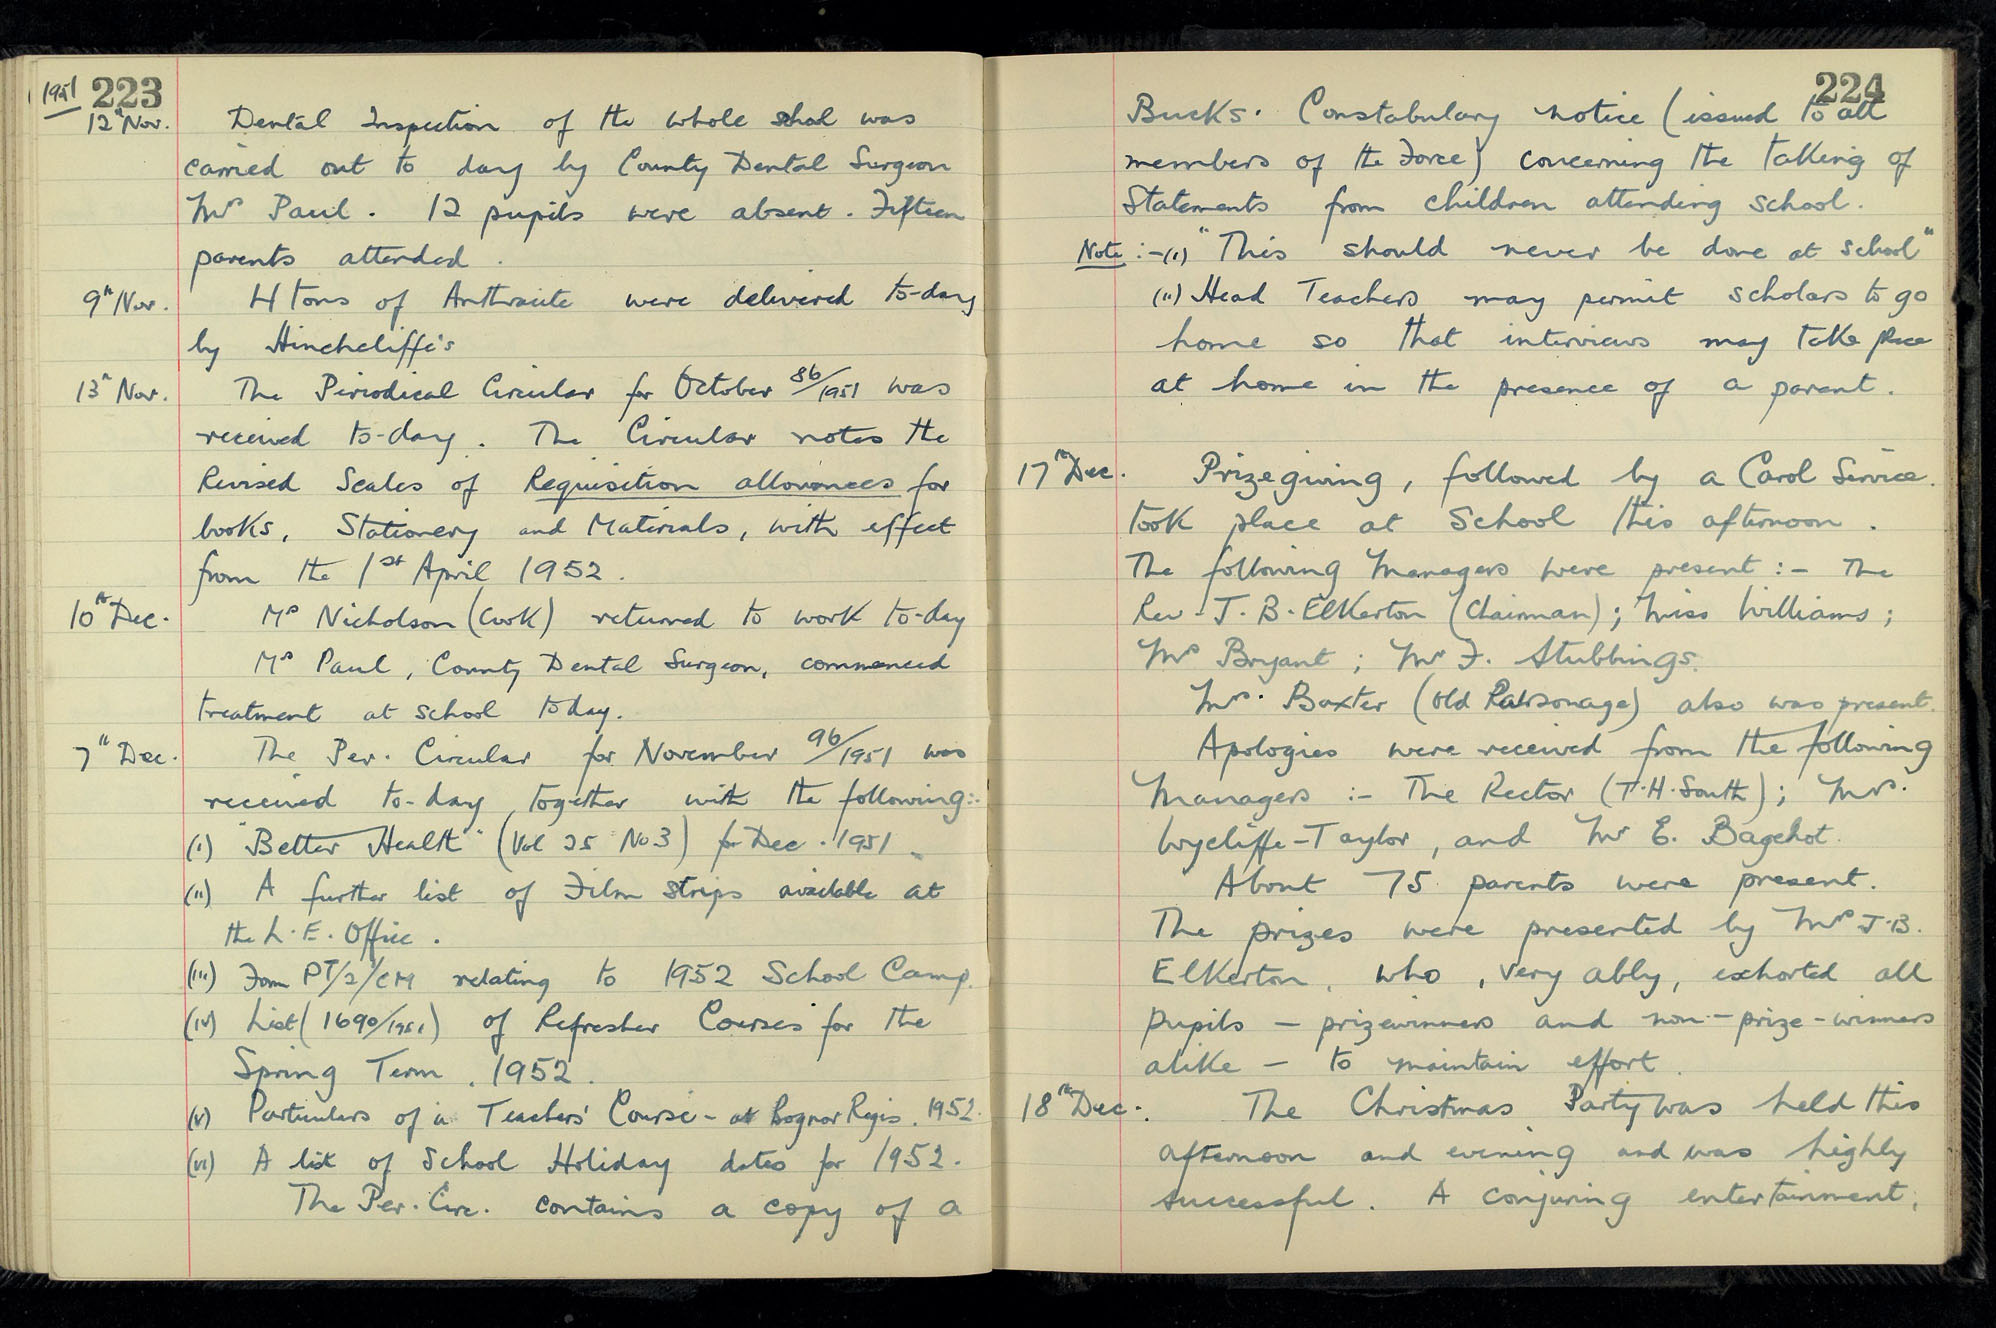 1951 223
12th Nov. Dental Inspection of the whole school was
carried out to day by County Dental Surgeon
Mrs Paul. 12 pupils were absent. Fifteen
parents attended.
9th Nov. 4 tons of Anthracite were delivered to-day
by Hinchcliffe's
13th Nov. The Periodical Circular for October 86/1951 was
received to-day. The Circular notes the
Revised Scales of Requisition allowances for
books, Stationery and Materials, with effect
from the 1st April 1952.
10th Dec. Mrs Nicholson (Cook) returned to work to-day
Mrs Paul, County Dental Surgeon, commenced
treatment at school today.
7th Dec. The Per. Circular for November 96/1951 was
received to-day together with the following:-
(i) "Better Health" (Vol 25 No 3) for Dec. 1951.
(ii) A further list of Film Strips available at
the L.E. Office.
(iii) Form PT/2/CM relating to 1952 School Camp.
(iv) List (1690/1951) of Refresher Courses for the
Spring Term, 1952.
(v) Particulars of a Teachers' Course - at Bognor Regis. 1952.
(vi) A list of School Holiday dates for 1952.
The Per. Circ. contains a copy of a
224
Bucks. Constabulary notice (issued to all
members of the Force) concerning the taking of
Statements from children attending school.
Note :- (i) "This should never be done at school"
(ii) Head Teachers may permit scholars to go
home so that interviews may take place
at home in the presence of a parent.
17th Dec. Prizegiving, followed by a Carol Service.
took place at School this afternoon.
The following Managers were present :- The
Rev. J. B. Elkerton (Chairman); Miss Williams;
Mrs Bryant; Mr F. Stubbings.
Mrs. Baxter (Old Parsonage) also was present.
Apologies were received from the following
Managers :- The Rector (T.H. South); Mrs.
Wycliffe-Taylor, and Mr E. Bagehot.
About 75 parents were present.
The prizes were presented by Mrs J.B.
Elkerton, who, very ably, exhorted all
pupils - prizewinners and non-prize-winners
alike - to maintain effort.
18th Dec. The Christmas Party was held this
afternoon and evening and was highly
successful. A conjuring entertainment,